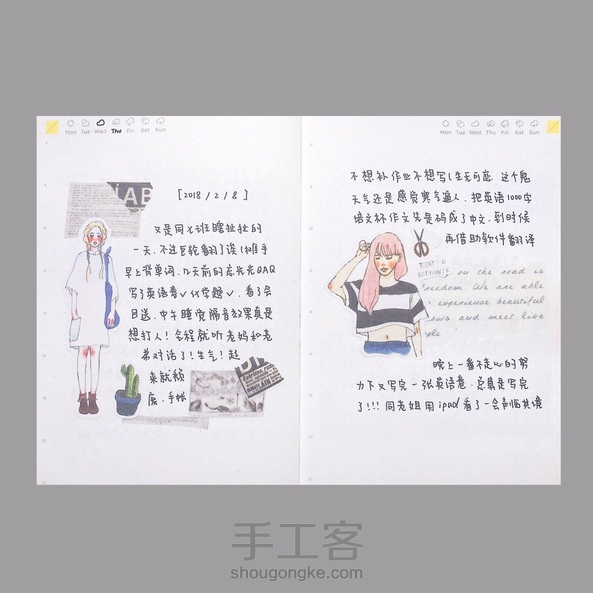 Mon Tue Wed Thu Fri Sat Sun
Mon Tue Wed Thu Fri Sat Sun
[2018 / 2 / 8]
又是同七班瞎扯扯的
一天.不过
早上背单词.几天前的 QAQ
写了英语卷√化学题√.看了会
日迹.中午睡觉隔音效果真是
想打人!全程就听老妈和老
弟对话了!生气!起
来就颓
废.手帐
不想补作业不想写!生无可恋.这个鬼
天气还是感觉寒气逼人.把英语1000字
培文杯作文先是码成了中文.到时候
再借助软件翻译
on the road is
freedom. We are able
experience beautiful
and meet
晚上一番不走心的努
力下又写完一张英语卷.总算是写完
了!!!同老姐用ipad看了一会声临其境
手工客
shougongke.com